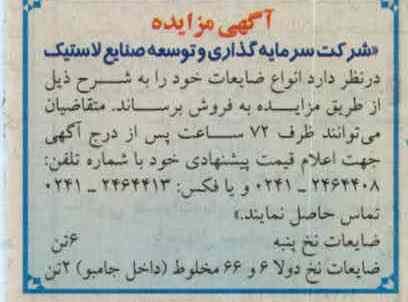 آگهی مزایده
«شرکت سرمایه گذاری و توسعه صنایع لاستیک
درنظر دارد انواع ضایعات خود را به شرح ذیل
از طریق مزایده به فروش برساند. متقاضیان
می‌توانند ظرف ۷۲ ساعت پس از درج آگهی
جهت اعلام قیمت پیشنهادی خود با شماره تلفن:
۲۴۶۴۴۰۸ ـ ۰۲۴۱ و یا فکس: ۲۴۶۴۴۱۳ ـ ۰۲۴۱
تماس حاصل نمایند.»
ضایعات نخ پنبه ۶تن
ضایعات نخ دولا ۶ و ۶۶ مخلوط (داخل جامبو) ۲تن